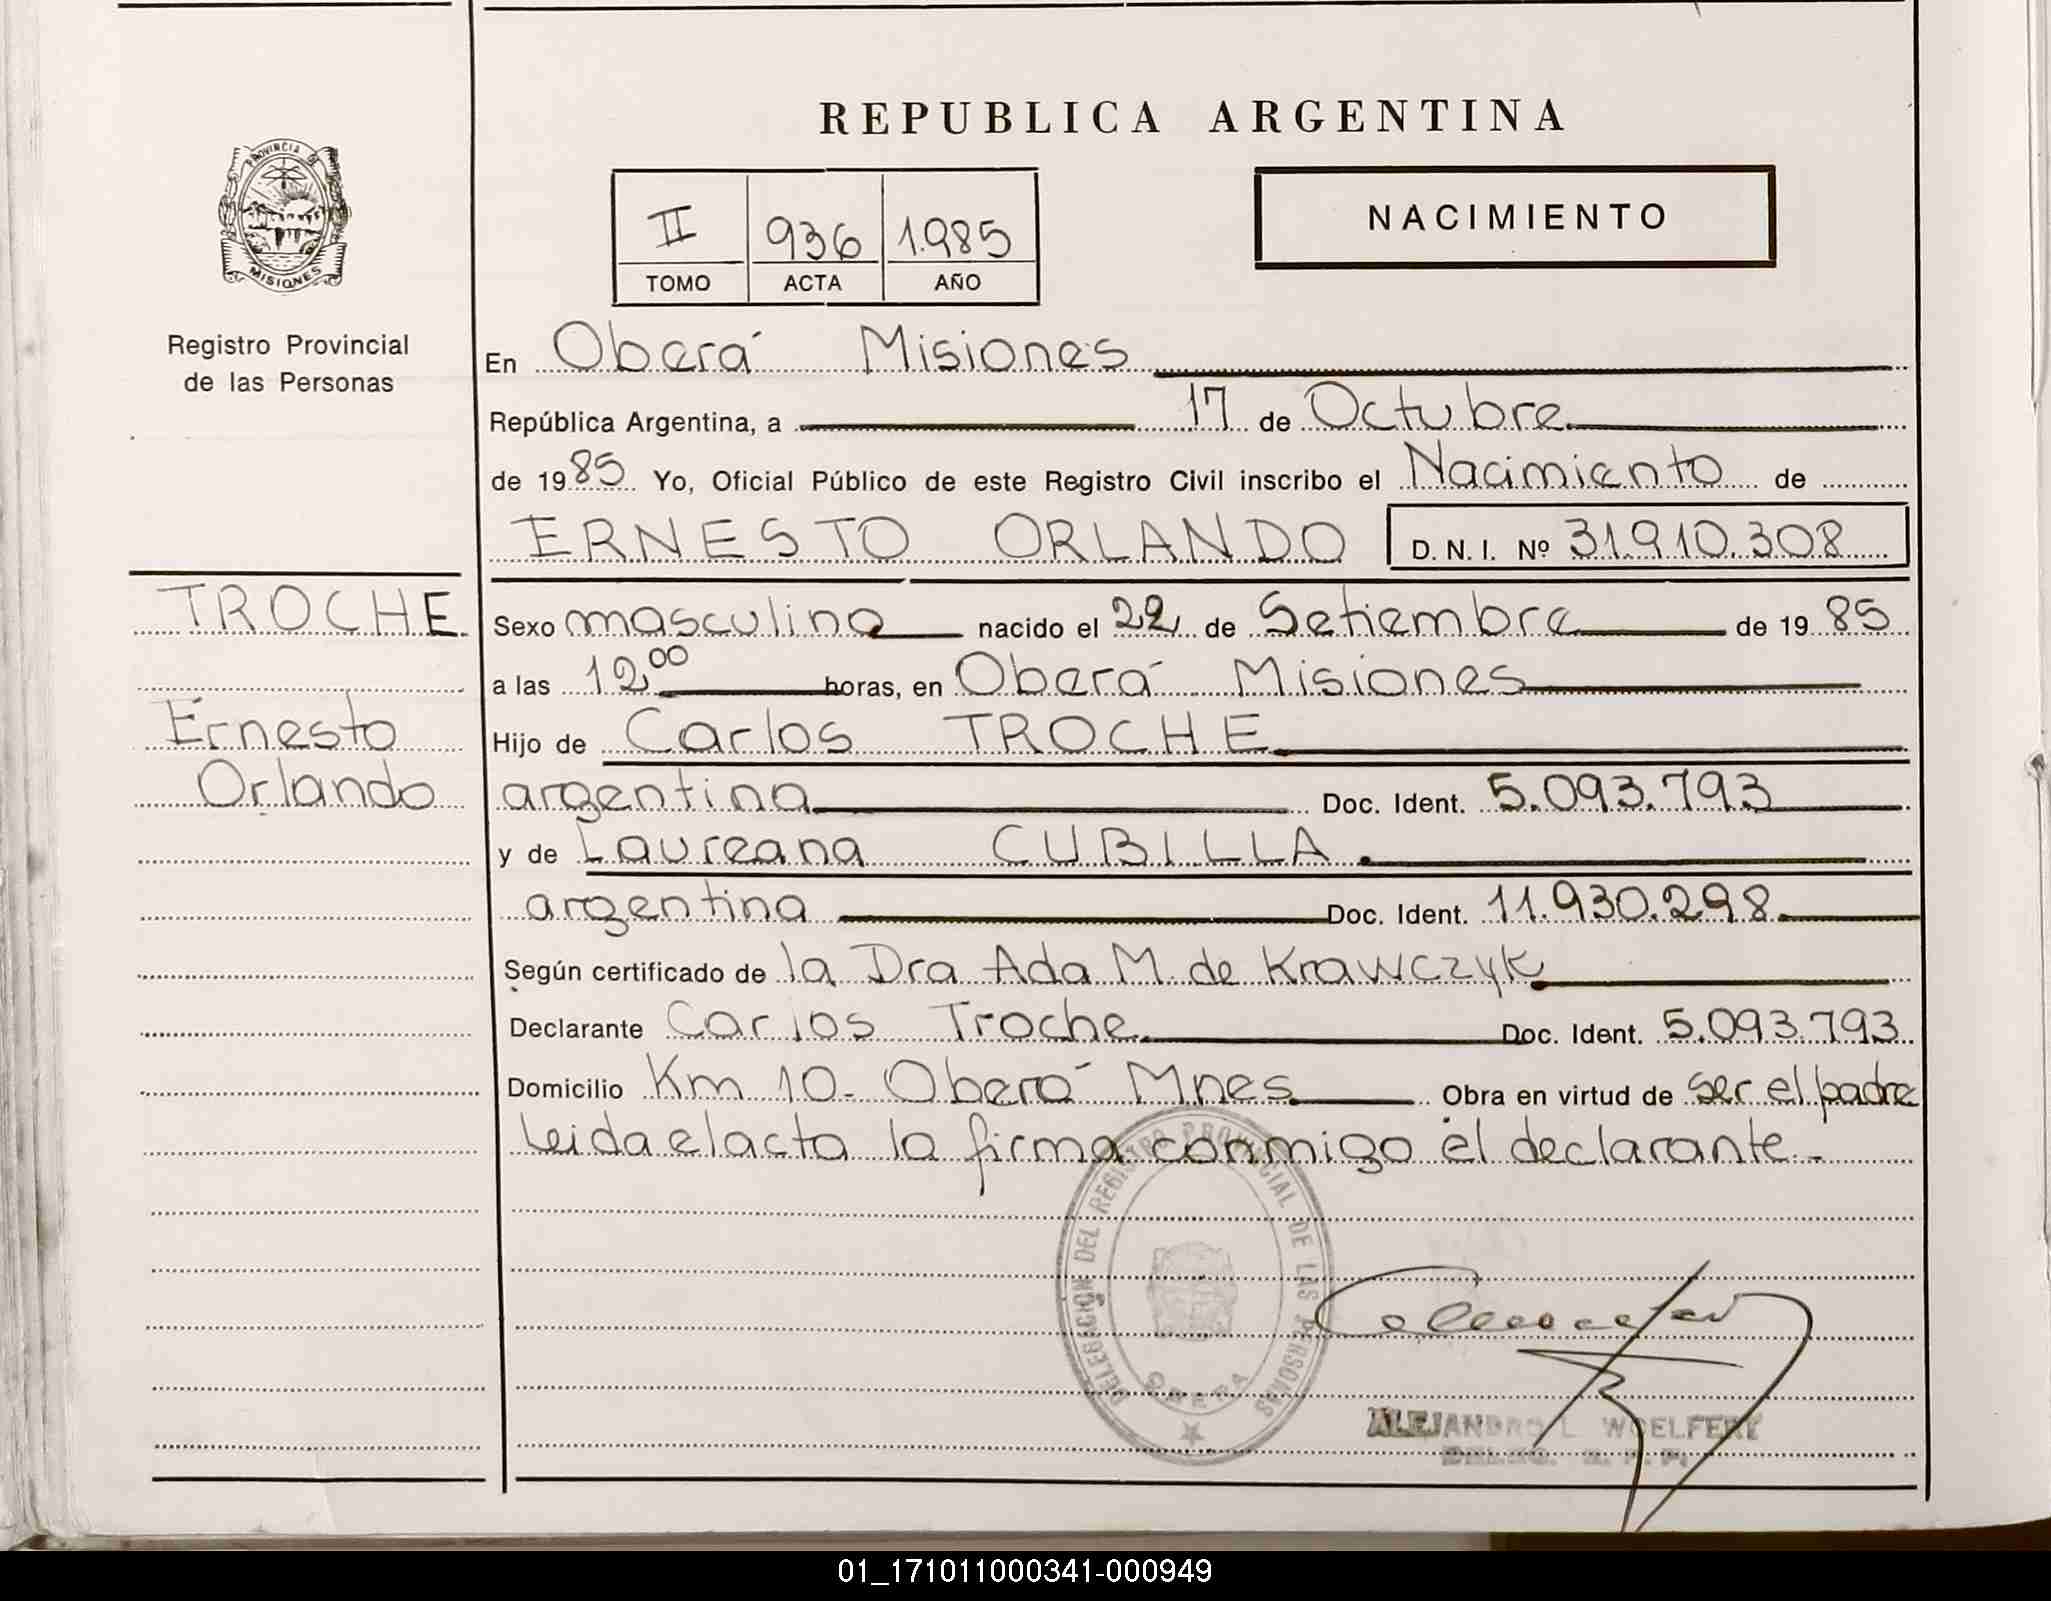 REPUBLICA ARGENTINA
PROVINCIA DE
MISIONES
Registro Provincial
de las Personas
II 936 1.985
TOMO ACTA AÑO
NACIMIENTO
En Oberá Misiones
República Argentina, a 17 de Octubre
de 1985 Yo, Oficial Público de este Registro Civil inscribo el Nacimiento de
ERNESTO ORLANDO D. N. I. Nº 31.910.308
TROCHE
Ernesto
Orlando
Sexo masculino nacido el 22 de Setiembre de 1985
a las 12,00 horas, en Oberá Misiones
Hijo de Carlos TROCHE
argentino Doc. Ident. 5.093.793
y de Laureana CUBILLA
argentina Doc. Ident. 11.930.298
Según certificado de la Dra Ada M. de Krawczyk
Declarante Carlos Troche Doc. Ident. 5.093.793
Domicilio Km 10- Oberá Mnes Obra en virtud de ser el padre
Leida el acta la firma conmigo el declarante.-
DELEGACIÓN DEL REGISTRO PROVINCIAL DE LAS PERSONAS
OBERA
ALEJANDRO L WOELFERT
01_171011000341-000949